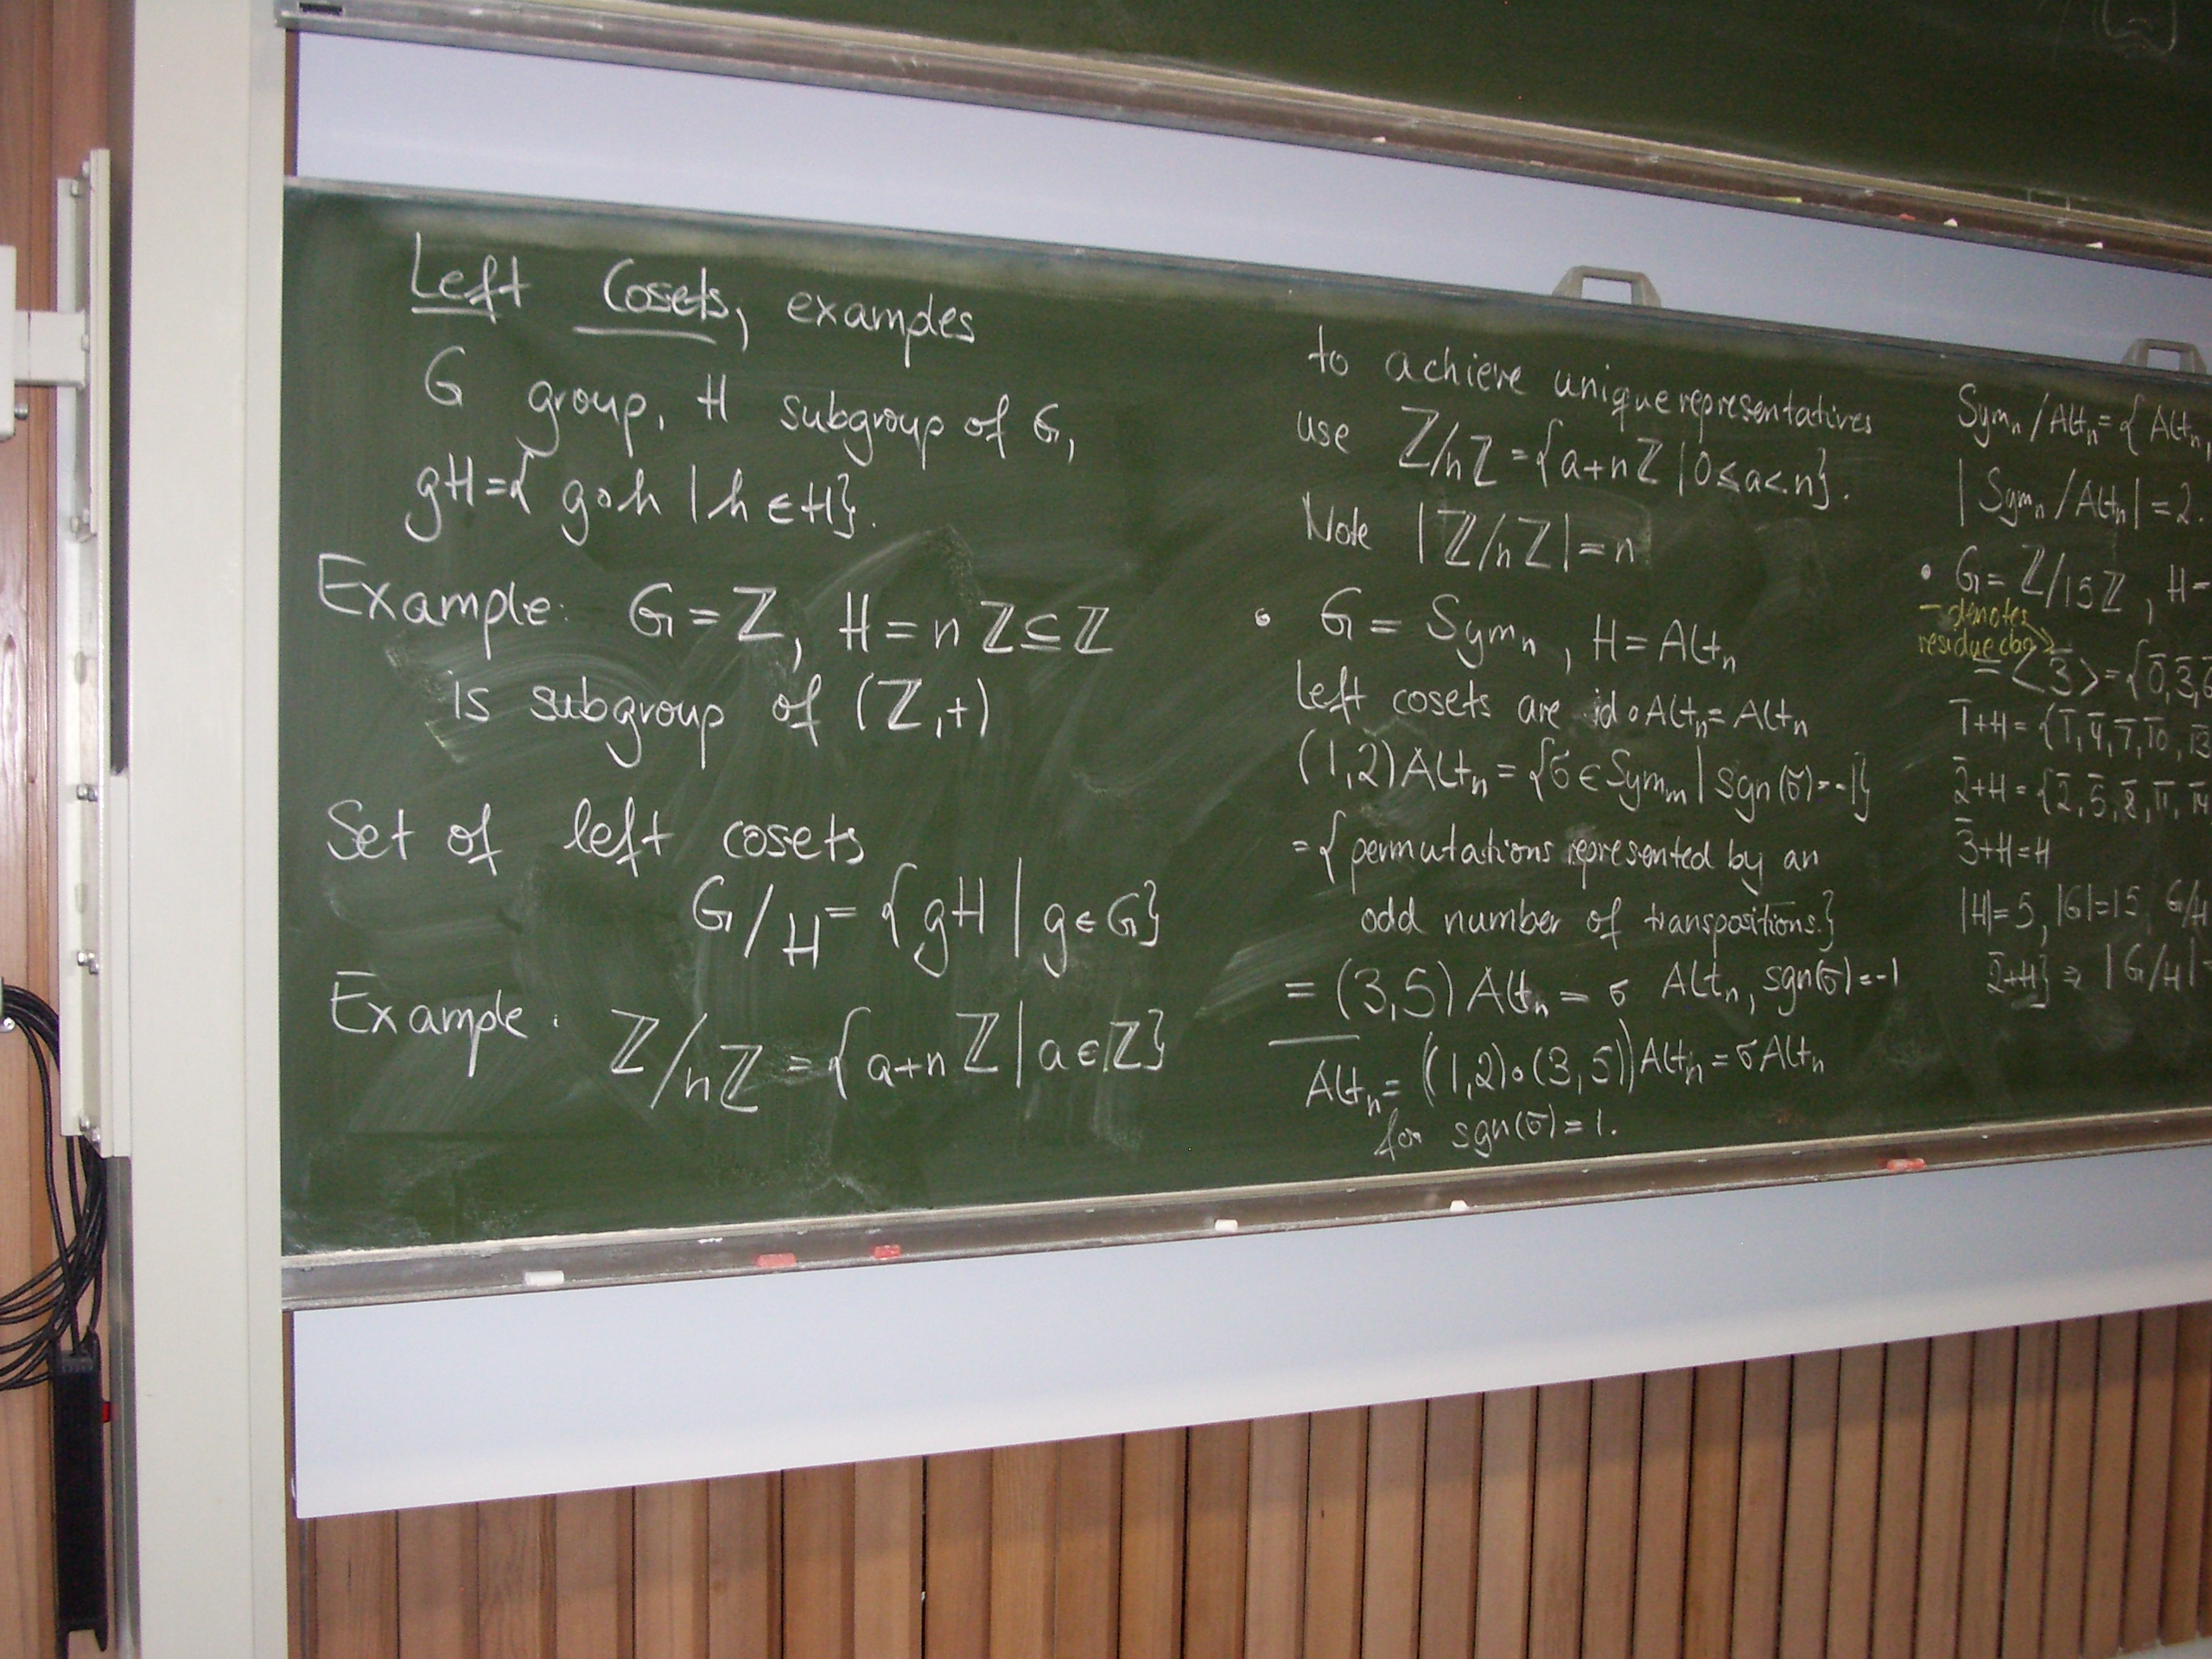 Left Cosets, examples
G group, H subgroup of G,
gH={ g∘h | h ∈ H}.
Example: G=ℤ, H=nℤ⊆ℤ
is subgroup of (ℤ,+)
Set of left cosets
G/H={gH | g∈G}
Example: ℤ/nℤ={a+nℤ | a∈ℤ}
to achieve unique representatives
use ℤ/nℤ={a+nℤ | 0≤a<n}.
Note |ℤ/nℤ|=n
• G = Symₙ, H=Altₙ
left cosets are id∘Altₙ=Altₙ
(1,2)Altₙ={σ∈Symₘ | sgn(σ)=-1}
={permutations represented by an
odd number of transpositions.}
=(3,5)Altₙ=σ Altₙ, sgn(σ)=-1
Altₙ=((1,2)∘(3,5))Altₙ=σAltₙ
for sgn(σ)=1.
Symₙ/Altₙ={Altₙ,
|Symₙ/Altₙ|=2.
• G=ℤ/15ℤ, H=
‾ denotes
residue
=⟨3̄⟩={0̄,3̄,
1̄+H={1̄,4̄,7̄,1̅0̅,1̅3̅
2̄+H={2̄,5̄,8̄,1̅1̅,1̅4̅
3̄+H=H
|H|=5, |G|=15, G/H
2̄+H} ⇒ |G/H|=